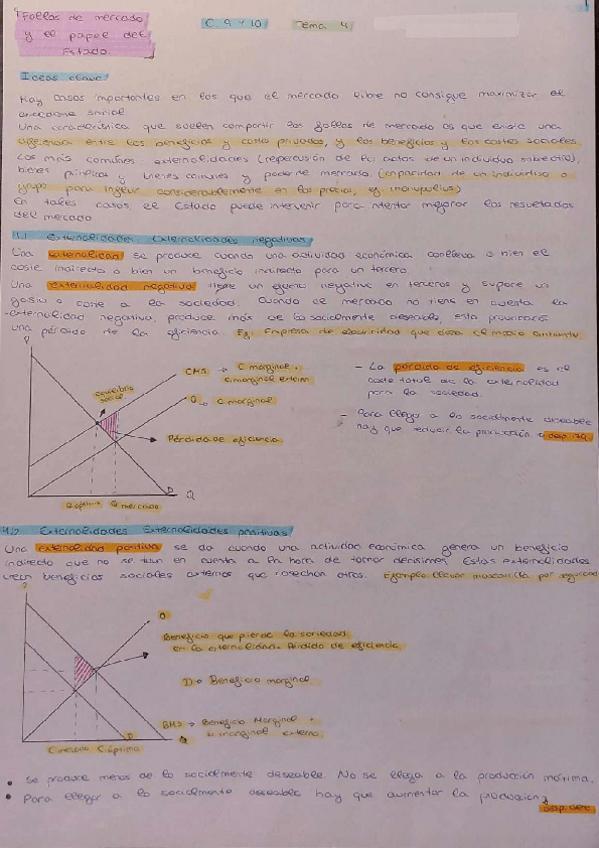 Fallos de mercado
y el papel del
Estado.
C. 9 y 10
Tema 4
Ideas clave:
Hay casos importantes en los que el mercado libre no consigue maximizar el
excedente social
Una característica que suelen compartir los fallos de mercado es que existe una
diferencia entre los beneficios y costes privados, y los beneficios y los costes sociales
Los más comunes: externalidades (repercusión de los actos de un individuo sobre otro),
bienes públicos y bienes comunes y poder de mercado (capacidad de un individuo o
grupo para influir considerablemente en los precios, ej. monopolios)
En tales casos el Estado puede intervenir para intentar mejorar los resultados
del mercado
Externalidades Externalidades negativas
Una externalidad se produce cuando una actividad económica conlleva o bien el
coste indirecto o bien un beneficio indirecto para un tercero.
Una externalidad negativa tiene un efecto negativo en terceros y supone un
gasto o coste a la sociedad. Cuando el mercado no tiene en cuenta la
externalidad negativa, produce más de lo socialmente deseable, esto provocará
una pérdida de la eficiencia. Ej: Empresa de electricidad que daña el medio ambiente
P
CMS → C marginal +
C marginal externo
O → C marginal
equilibrio
social
Pérdida de eficiencia
D
Q
Q óptima Q mercado
- La pérdida de eficiencia es el
coste total de la externalidad
para la sociedad.
- Para llegar a lo socialmente deseable
hay que reducir la producción
4.2 Externalidades Externalidades positivas
Una externalidad positiva se da cuando una actividad económica genera un beneficio
indirecto que no se tiene en cuenta a la hora de tomar decisiones. Estas externalidades
crean beneficios sociales externos que cosechan otros. Ejemplo llevar mascarilla por seguridad
O
Beneficio que pierde la sociedad
en la externalidad. Pérdida de eficiencia
D → Beneficio marginal
BMS → Beneficio Marginal +
B marginal externo
D
C mercado C óptima
• Se produce menos de lo socialmente deseable. No se llega a la producción máxima.
• Para llegar a lo socialmente deseable hay que aumentar la producción